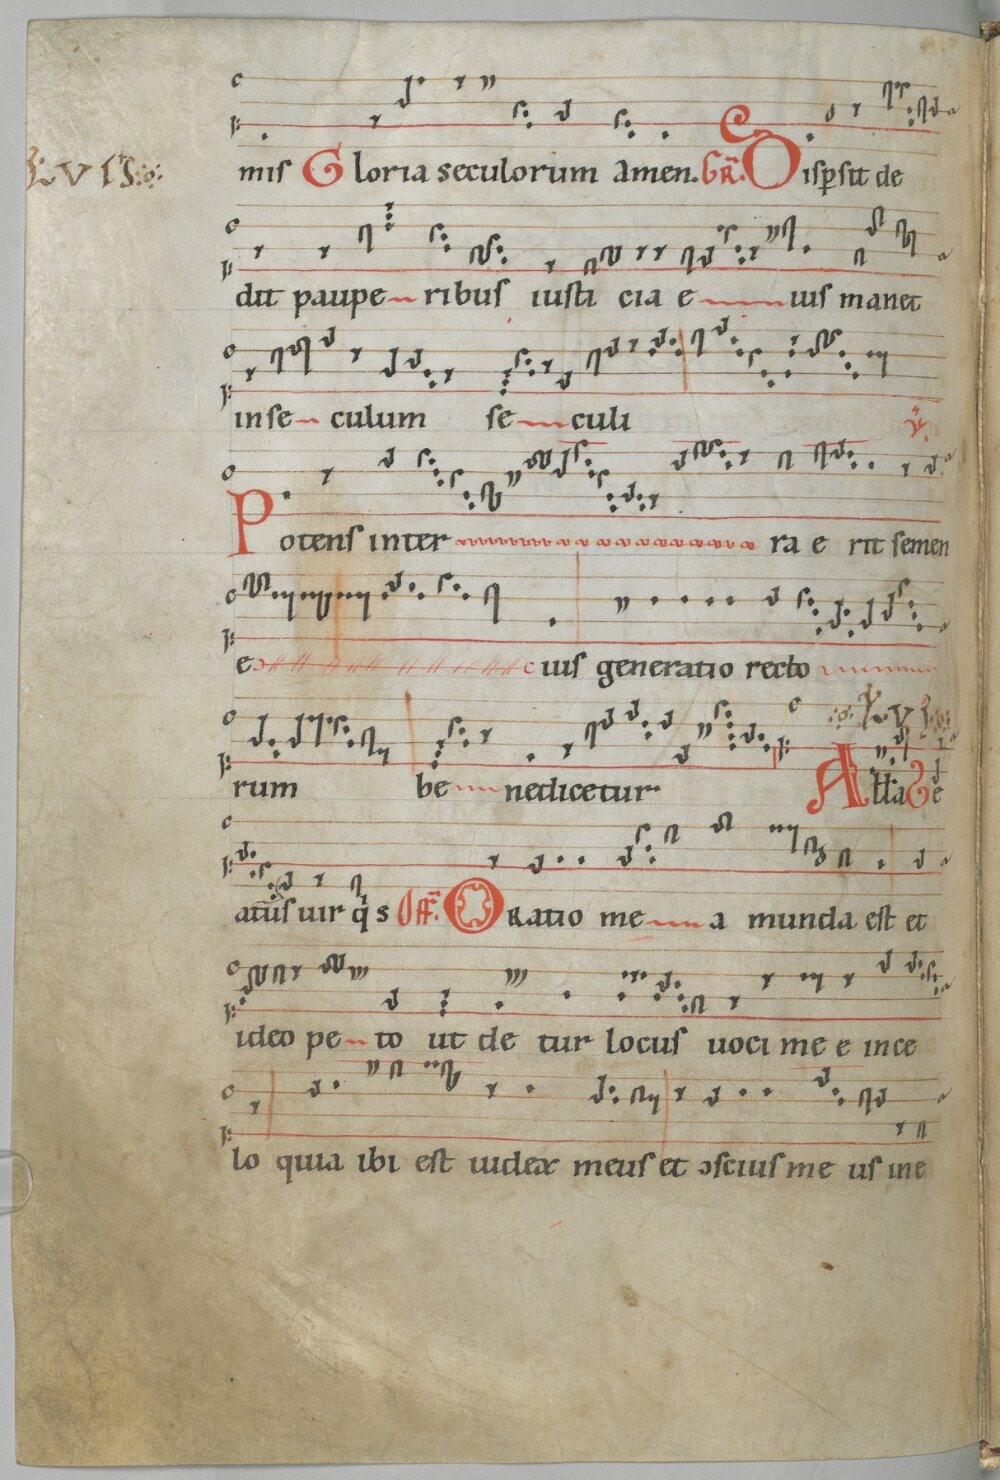 mis Gloria seculorum amen. GR. Dispsit de
dit paupe ribus iusti cia e ius manet
in se culum se culi
Potens in ter ra e rit semen
e ius generatio recto
rum be nedicetur Alla Be
atus uir q s Off. Oratio me a munda est et
ideo pe to ut de tur locus uoci me e in ce
lo quia ibi est iudex meus et ɔscius me us in e